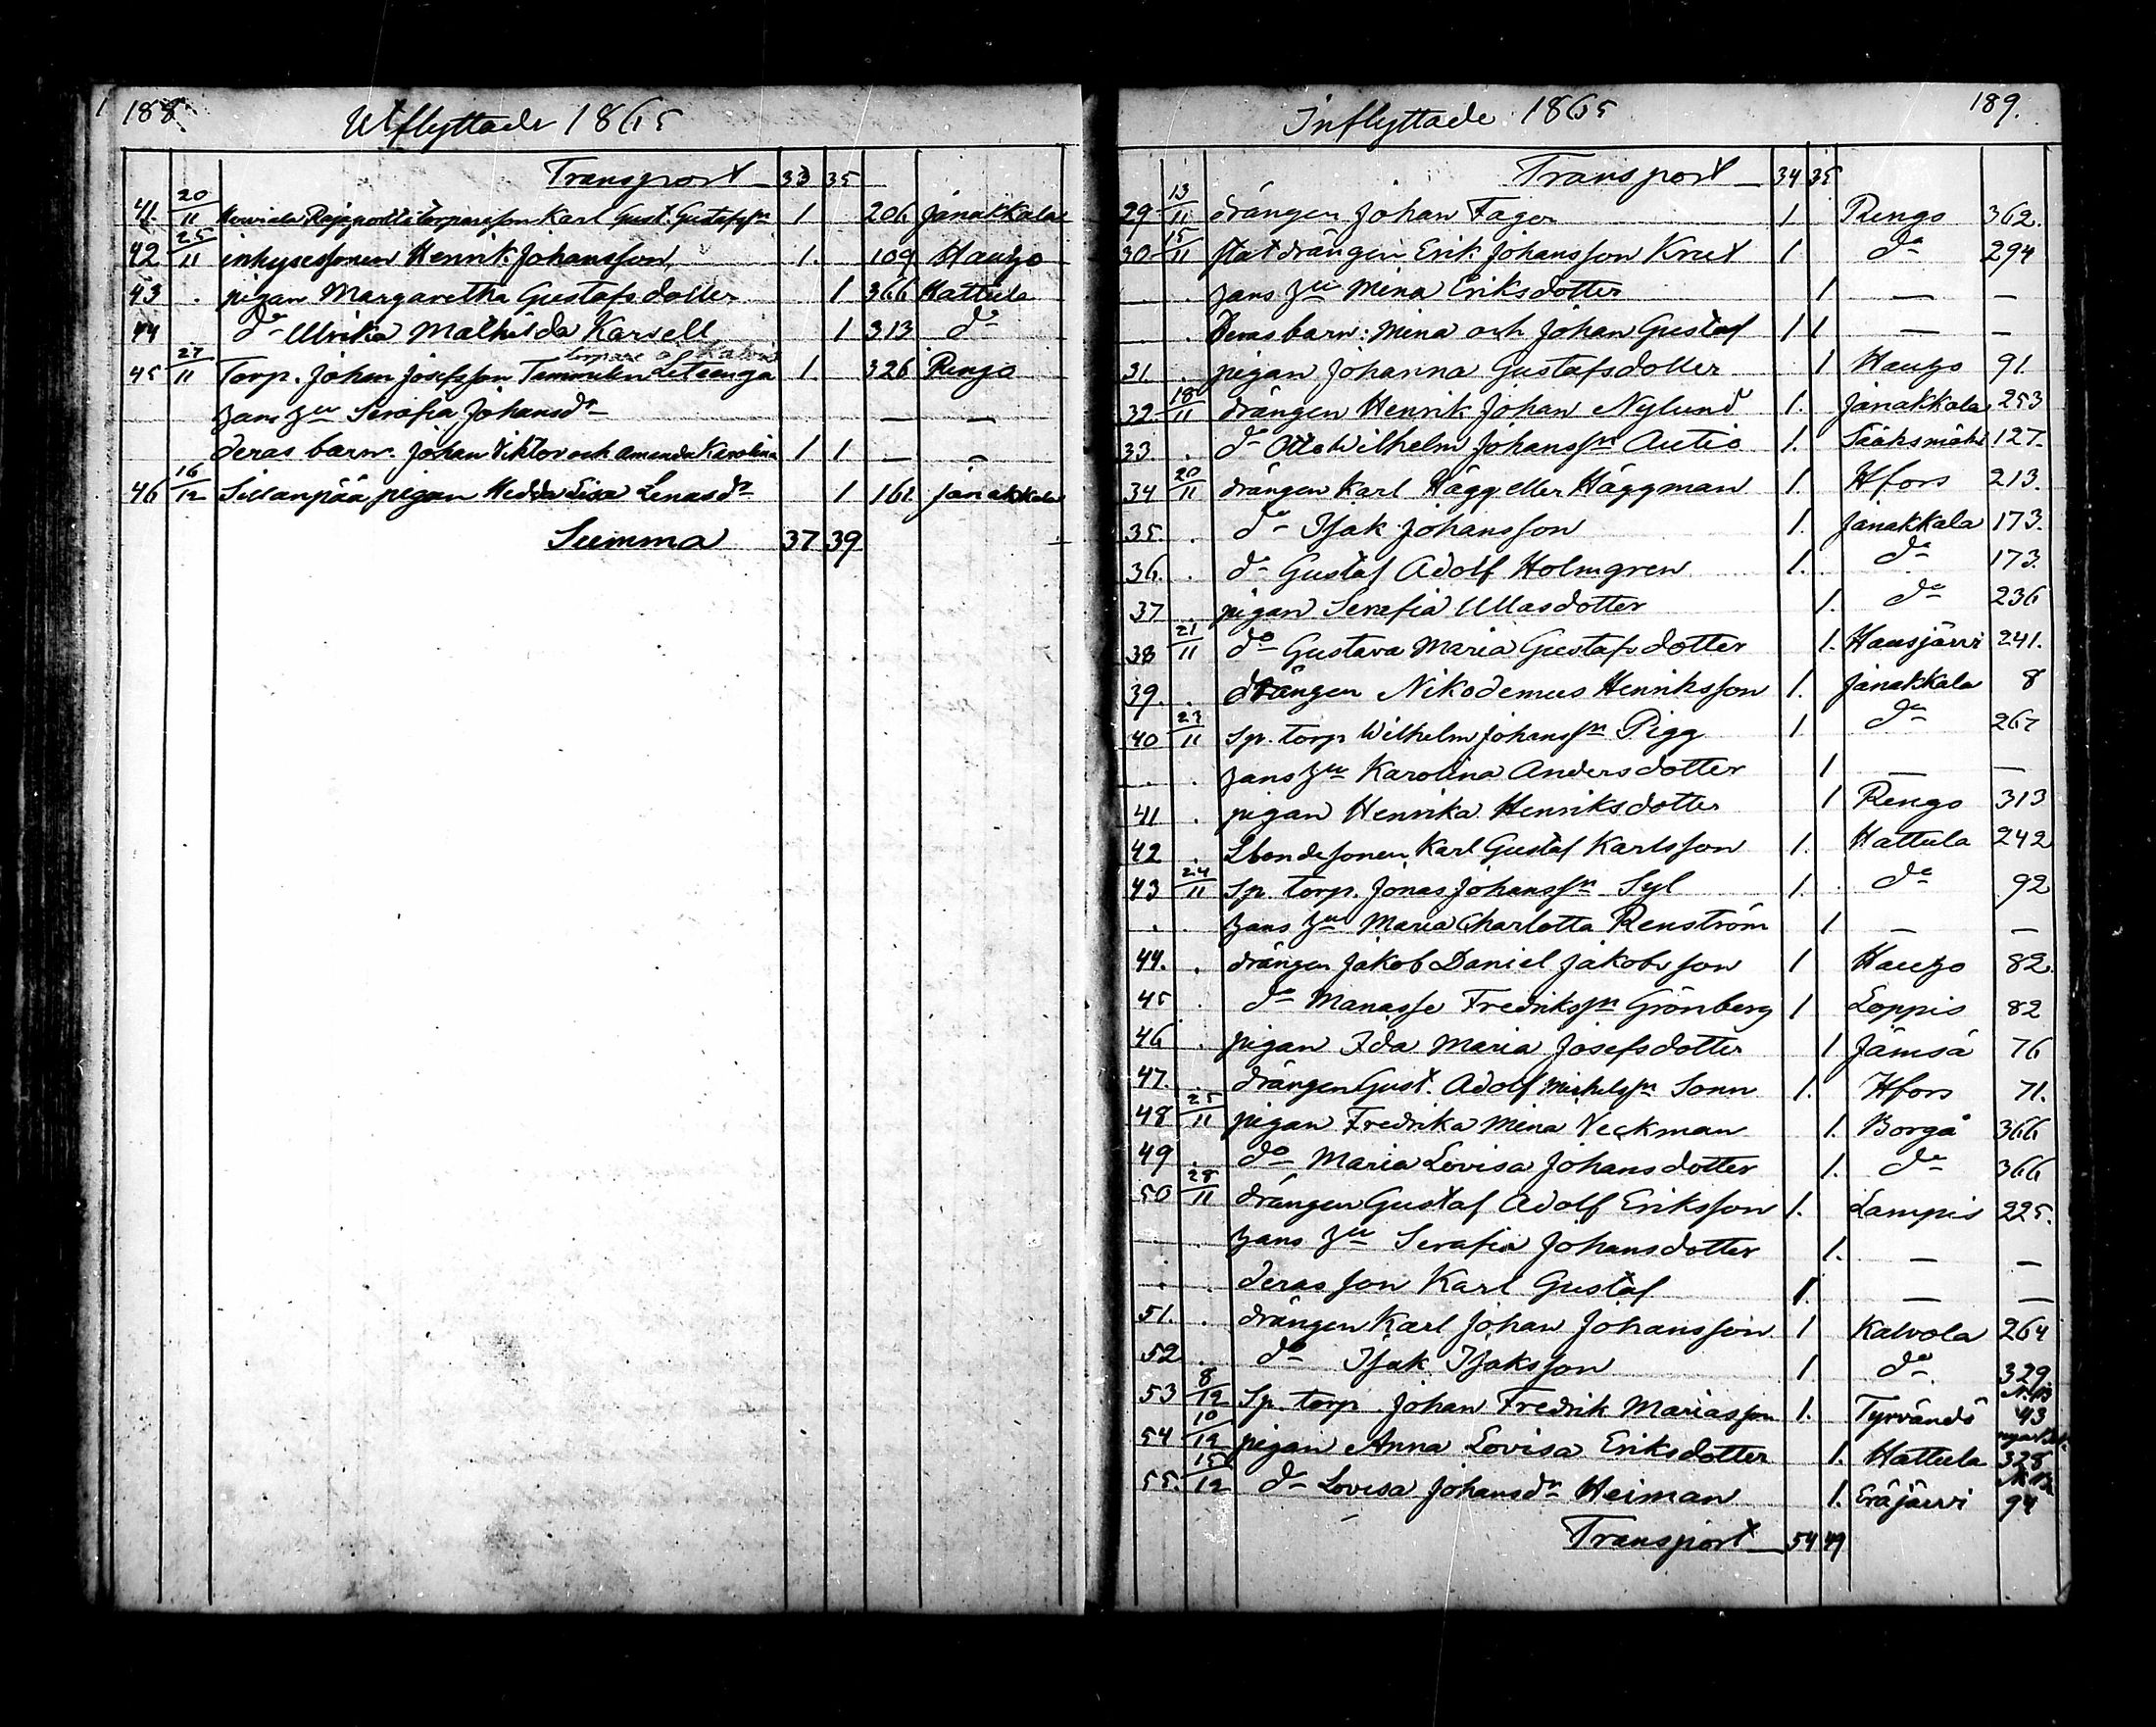 188
Utflyttade 1865
Transport 33 35
41. 20/11 Rajaportti torparesson Karl Gust. Gustafssn 1 206 Janakkala
42 25/11 inhysessonen Henrik Johansson 1. 109 Hauho
43 . pigan Margaretha Gustafsdotter 1 366 Hattula
44 do Ulrika Mathilda Karsell 1 313 do
torpare
45 27/11 Torp. Johan Josefsson Tammelin 1. 326 Rengo
hans hu Serafia Johansdr — —
deras barn. Johan Viktor och Amanda Karolina 1 1. — —
46 16/12 Sillanpää pigan Hedda Lisa Lenasdr 1 161 Janakkala
Summa 37 39
Inflyttade 1865
189.
Transport 34 35
29 13/11 drängen Johan Fager 1 Rengo 362.
30 15/11 statdrängen Erik Johansson Krut 1 do 294
. hans hu Mina Eriksdotter 1 — —
. Deras barn: Mina och Johan Gustaf 1 1 — —
31. . pigan Johanna Gustafsdotter 1 Hauho 91
32. 18/11 drängen Henrik Johan Nylund 1. Janakkala 253
33. . do Otto Wilhelm Johanssn Autio 1. Sääksmäki 127.
34 20/11 drängen Karl Hägg eller Häggman 1. Hfors 213.
35. . do Isak Johansson 1. Janakkala 173.
36. . do Gustaf Adolf Holmgren 1. do 173.
37 . pigan Serafia Ullasdotter 1. do 236
38 21/11 do Gustava Maria Gustafsdotter 1. Hausjärvi 241.
39. . drängen Nikodemus Henriksson 1. Janakkala 8
40 23/11 Sp. torp Wilhelm Johanssn Pigg 1 do 267
. . hans hu Karolina Andersdotter 1 — —
41 . pigan Henrika Henriksdotter 1 Rengo 313
42 . Lbondesonen Karl Gustaf Karlsson 1. Hattula 242
43 24/11 Sp. torp. Jonas Johanssn Syl 1. do 92
. . hans hu Maria Charlotta Renström 1 — —
44. . drängen Jakob Daniel Jakobsson 1 Hauho 82.
45 . do Manasse Fredrikssn Grönberg 1 Loppis 82
46 . pigan Ida Maria Josefsdotter 1 Jämsä 76
47. . drängen Gust. Adolf Michelssn Sonn 1. Hfors 71.
48 25/11 pigan Fredrika Mina Veckman 1. Borgå 366
49 . do Maria Lovisa Johansdotter 1. do 366
50 28/11 drängen Gustaf Adolf Eriksson 1. Lampis 225.
. hans hu Serafia Johansdotter 1. — —
. . deras son Karl Gustaf 1. — —
51. . drängen Karl Johan Johansson 1 Kalvola 264
52 . do Isak Isaksson 1 do 329
53 8/12 Sp. torp. Johan Fredrik Mariasson 1. Tyrvändö 43
54 10/12 pigan Anna Lovisa Eriksdotter 1. Hattula 328
55. 15/12 do Lovisa Johansdr Heiman 1. Eräjärvi 94
Transport 54 49